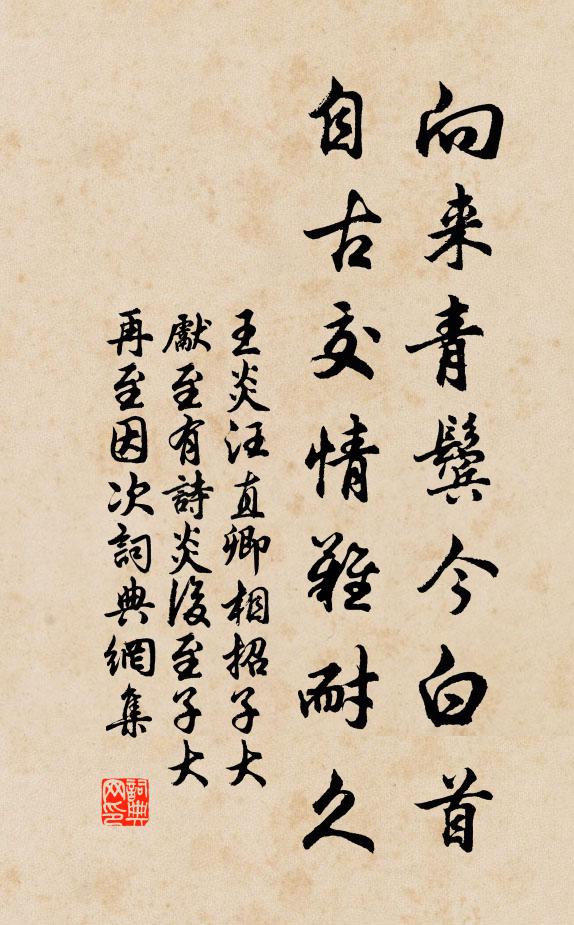 向来青鬢今白首
自古交情難耐久
王炎汪直卿相招子大
獻至有詩炎後至子大
再至因次詞典網集
詞典
网印